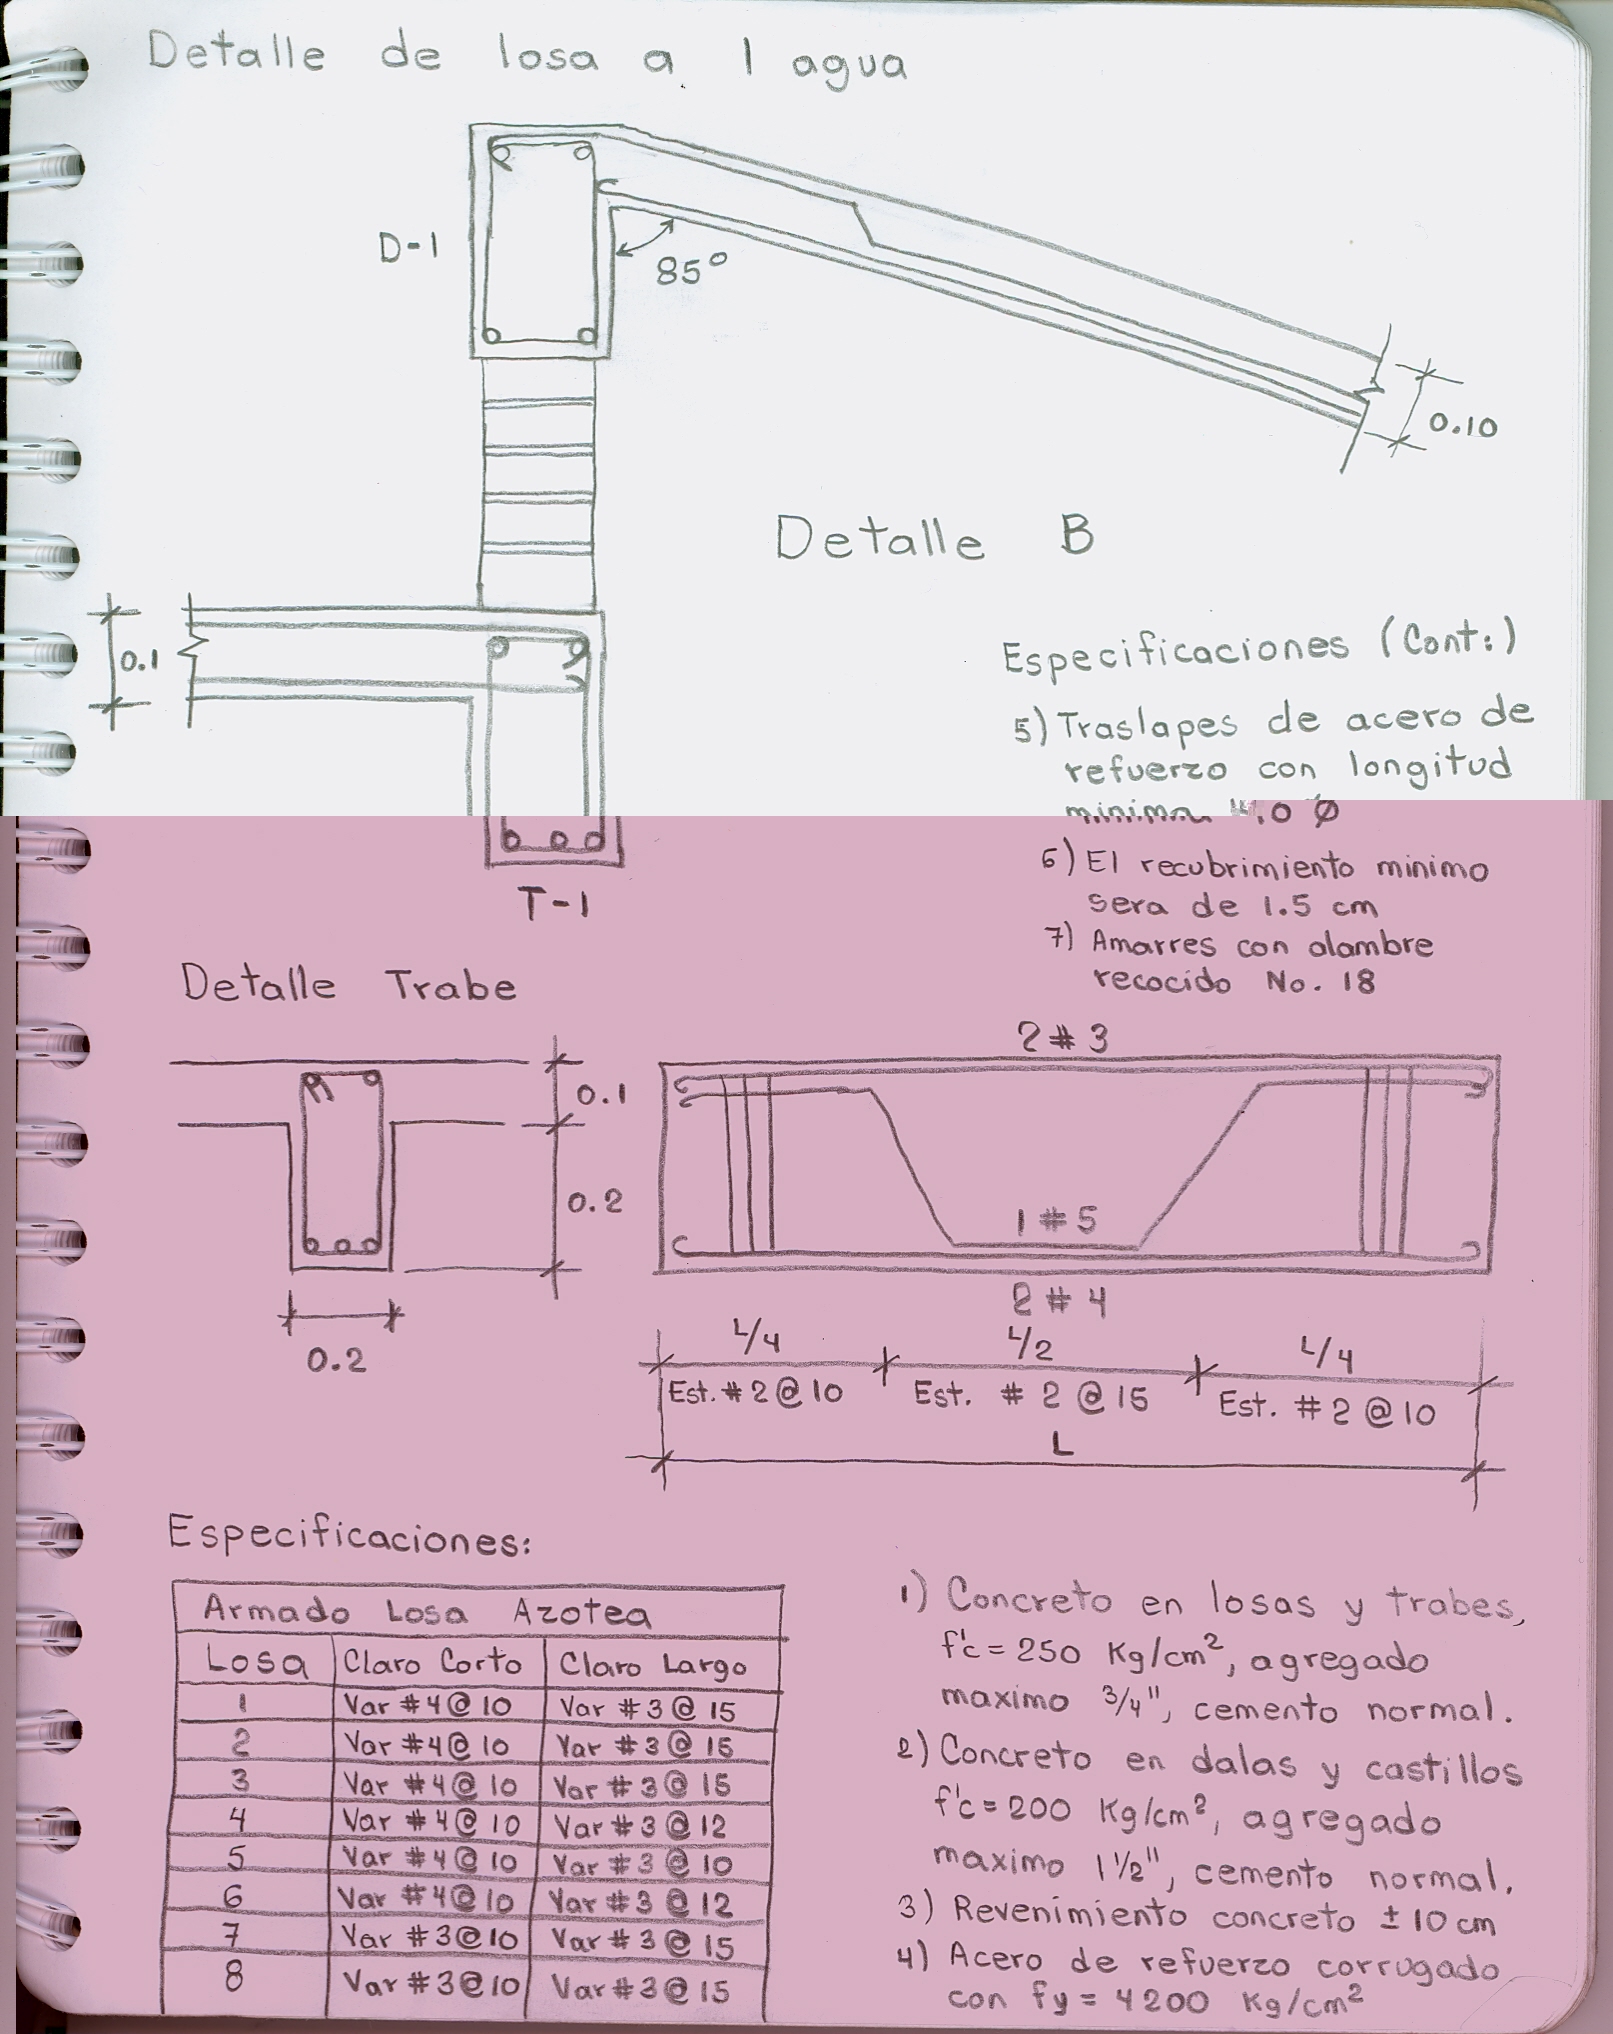 Detalle de losa a 1 agua
D-1
85°
0.10
Detalle B
0.1
Especificaciones (Cont:)
5) Traslapes de acero de
refuerzo con longitud
minima
Ø
6) El recubrimiento minimo
sera de 1.5 cm
7) Amarres con alambre
recocido No. 18
T-1
Detalle Trabe
0.1
0.2
0.2
2 # 3
1 # 5
2 # 4
L/4 L/2 L/4
Est. # 2 @ 10 Est. # 2 @ 15 Est. # 2 @ 10
L
Especificaciones:
Armado Losa Azotea
Losa Claro Corto Claro Largo
1 Var #4@ 10 Var #3@ 15
2 Var #4@ 10 Var #3@ 15
3 Var #4@ 10 Var #3@ 15
4 Var #4@ 10 Var #3@ 12
5 Var #4@ 10 Var #3@ 10
6 Var #4@ 10 Var #3@ 12
7 Var #3@ 10 Var #3@ 15
8 Var #3@ 10 Var #3@ 15
1) Concreto en losas y trabes,
f'c = 250 Kg/cm², agregado
maximo 3/4", cemento normal.
2) Concreto en dalas y castillos
f'c = 200 Kg/cm², agregado
maximo 1 1/2", cemento normal.
3) Revenimiento concreto ± 10 cm
4) Acero de refuerzo corrugado
con fy = 4200 Kg/cm²